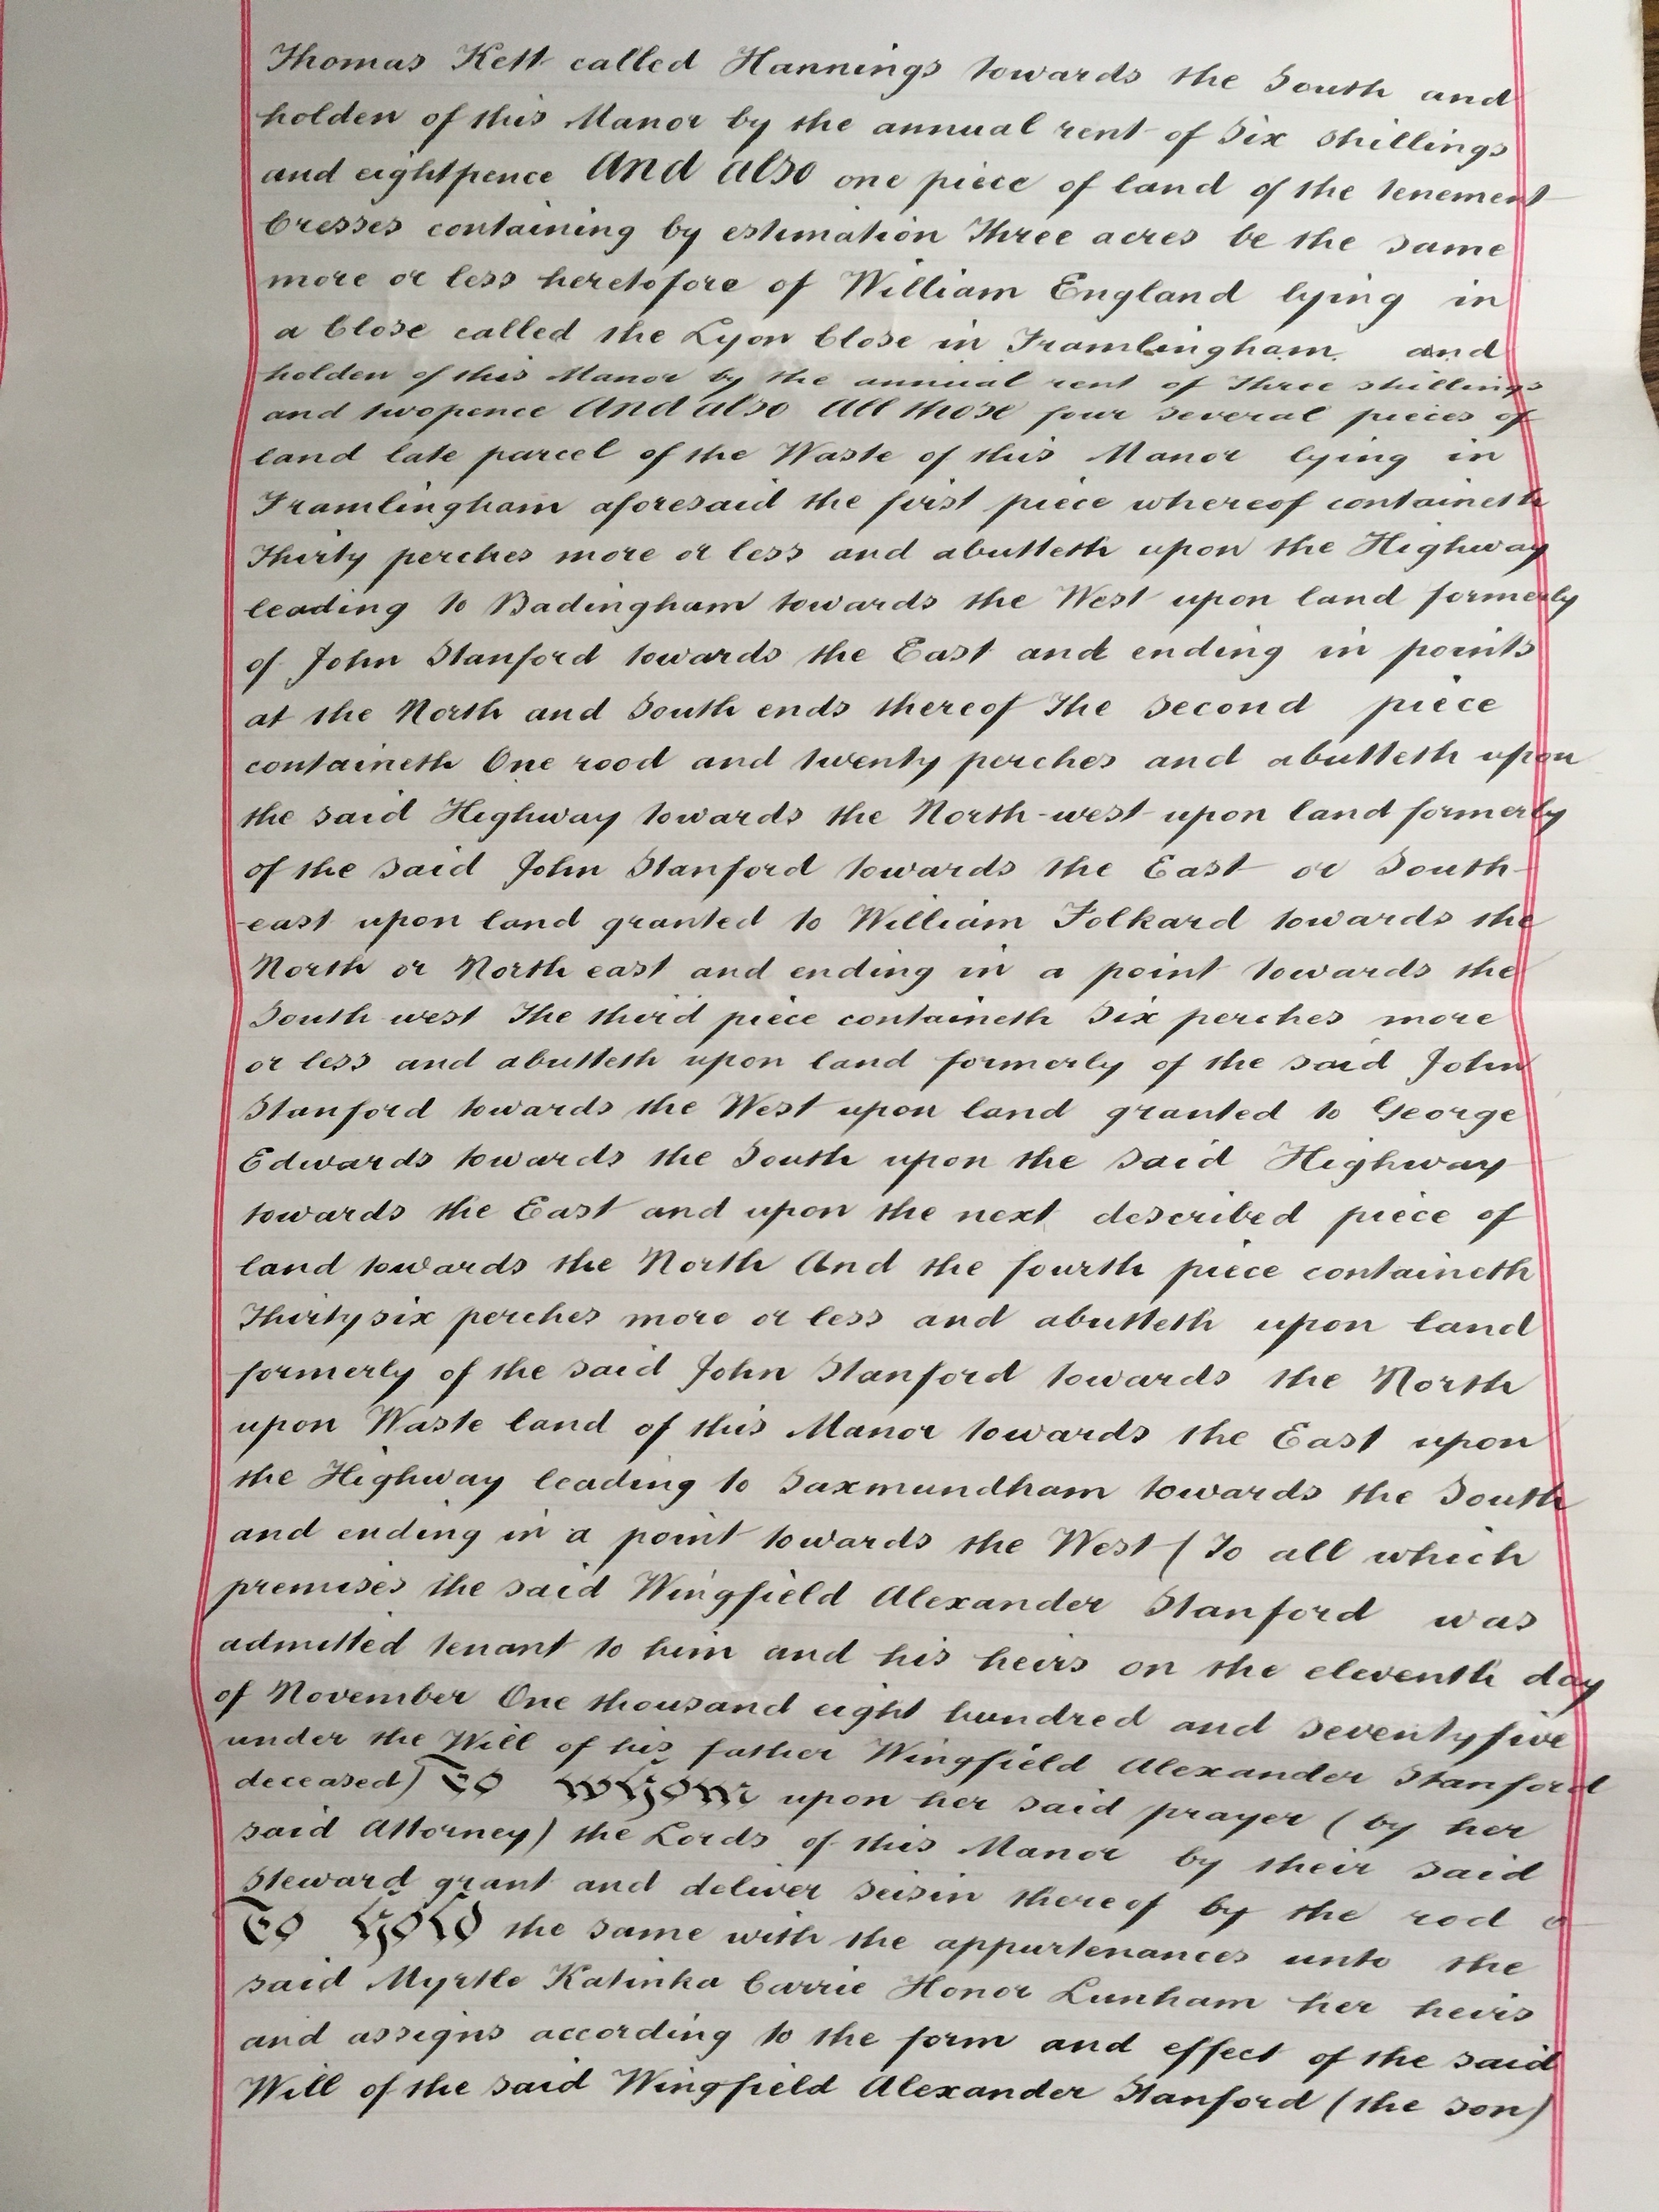 Thomas Kett called Hannings towards the South and
holden of this Manor by the annual rent of Six shillings
and eightpence And also one piece of land of the tenement
Cresses containing by estimation Three acres be the same
more or less heretofore of William England lying in
a Close called the Lyon Close in Framlingham and
holden of this Manor by the annual rent of Three shillings
and twopence And also All those four several pieces of
land late parcel of the Waste of this Manor lying in
Framlingham aforesaid the first piece whereof containeth
Thirty perches more or less and abutteth upon the Highway
leading to Badingham towards the West upon land formerly
of John Stanford towards the East and ending in points
at the North and South ends thereof The second piece
containeth One rood and twenty perches and abutteth upon
the said Highway towards the North-west upon land formerly
of the said John Stanford towards the East or South-
-east upon land granted to William Folkard towards the
North or North east and ending in a point towards the
South west The third piece containeth Six perches more
or less and abutteth upon land formerly of the said John
Stanford towards the West upon land granted to George
Edwards towards the South upon the said Highway
towards the East and upon the next described piece of
land towards the North And the fourth piece containeth
Thirtysix perches more or less and abutteth upon land
formerly of the said John Stanford towards the North
upon Waste land of this Manor towards the East upon
the Highway leading to Saxmundham towards the South
and ending in a point towards the West (To all which
premises the said Wingfield Alexander Stanford was
admitted tenant to him and his heirs on the eleventh day
of November One thousand eight hundred and seventyfive
under the Will of his father Wingfield Alexander Stanford
deceased) To whom upon her said prayer (by her
said Attorney) the Lords of this Manor by their said
Steward grant and deliver seisin thereof by the rod
To hold the same with the appurtenances unto the
said Myrtle Katinka Carrie Honor Lunham her heirs
and assigns according to the form and effect of the said
Will of the said Wingfield Alexander Stanford (the son)